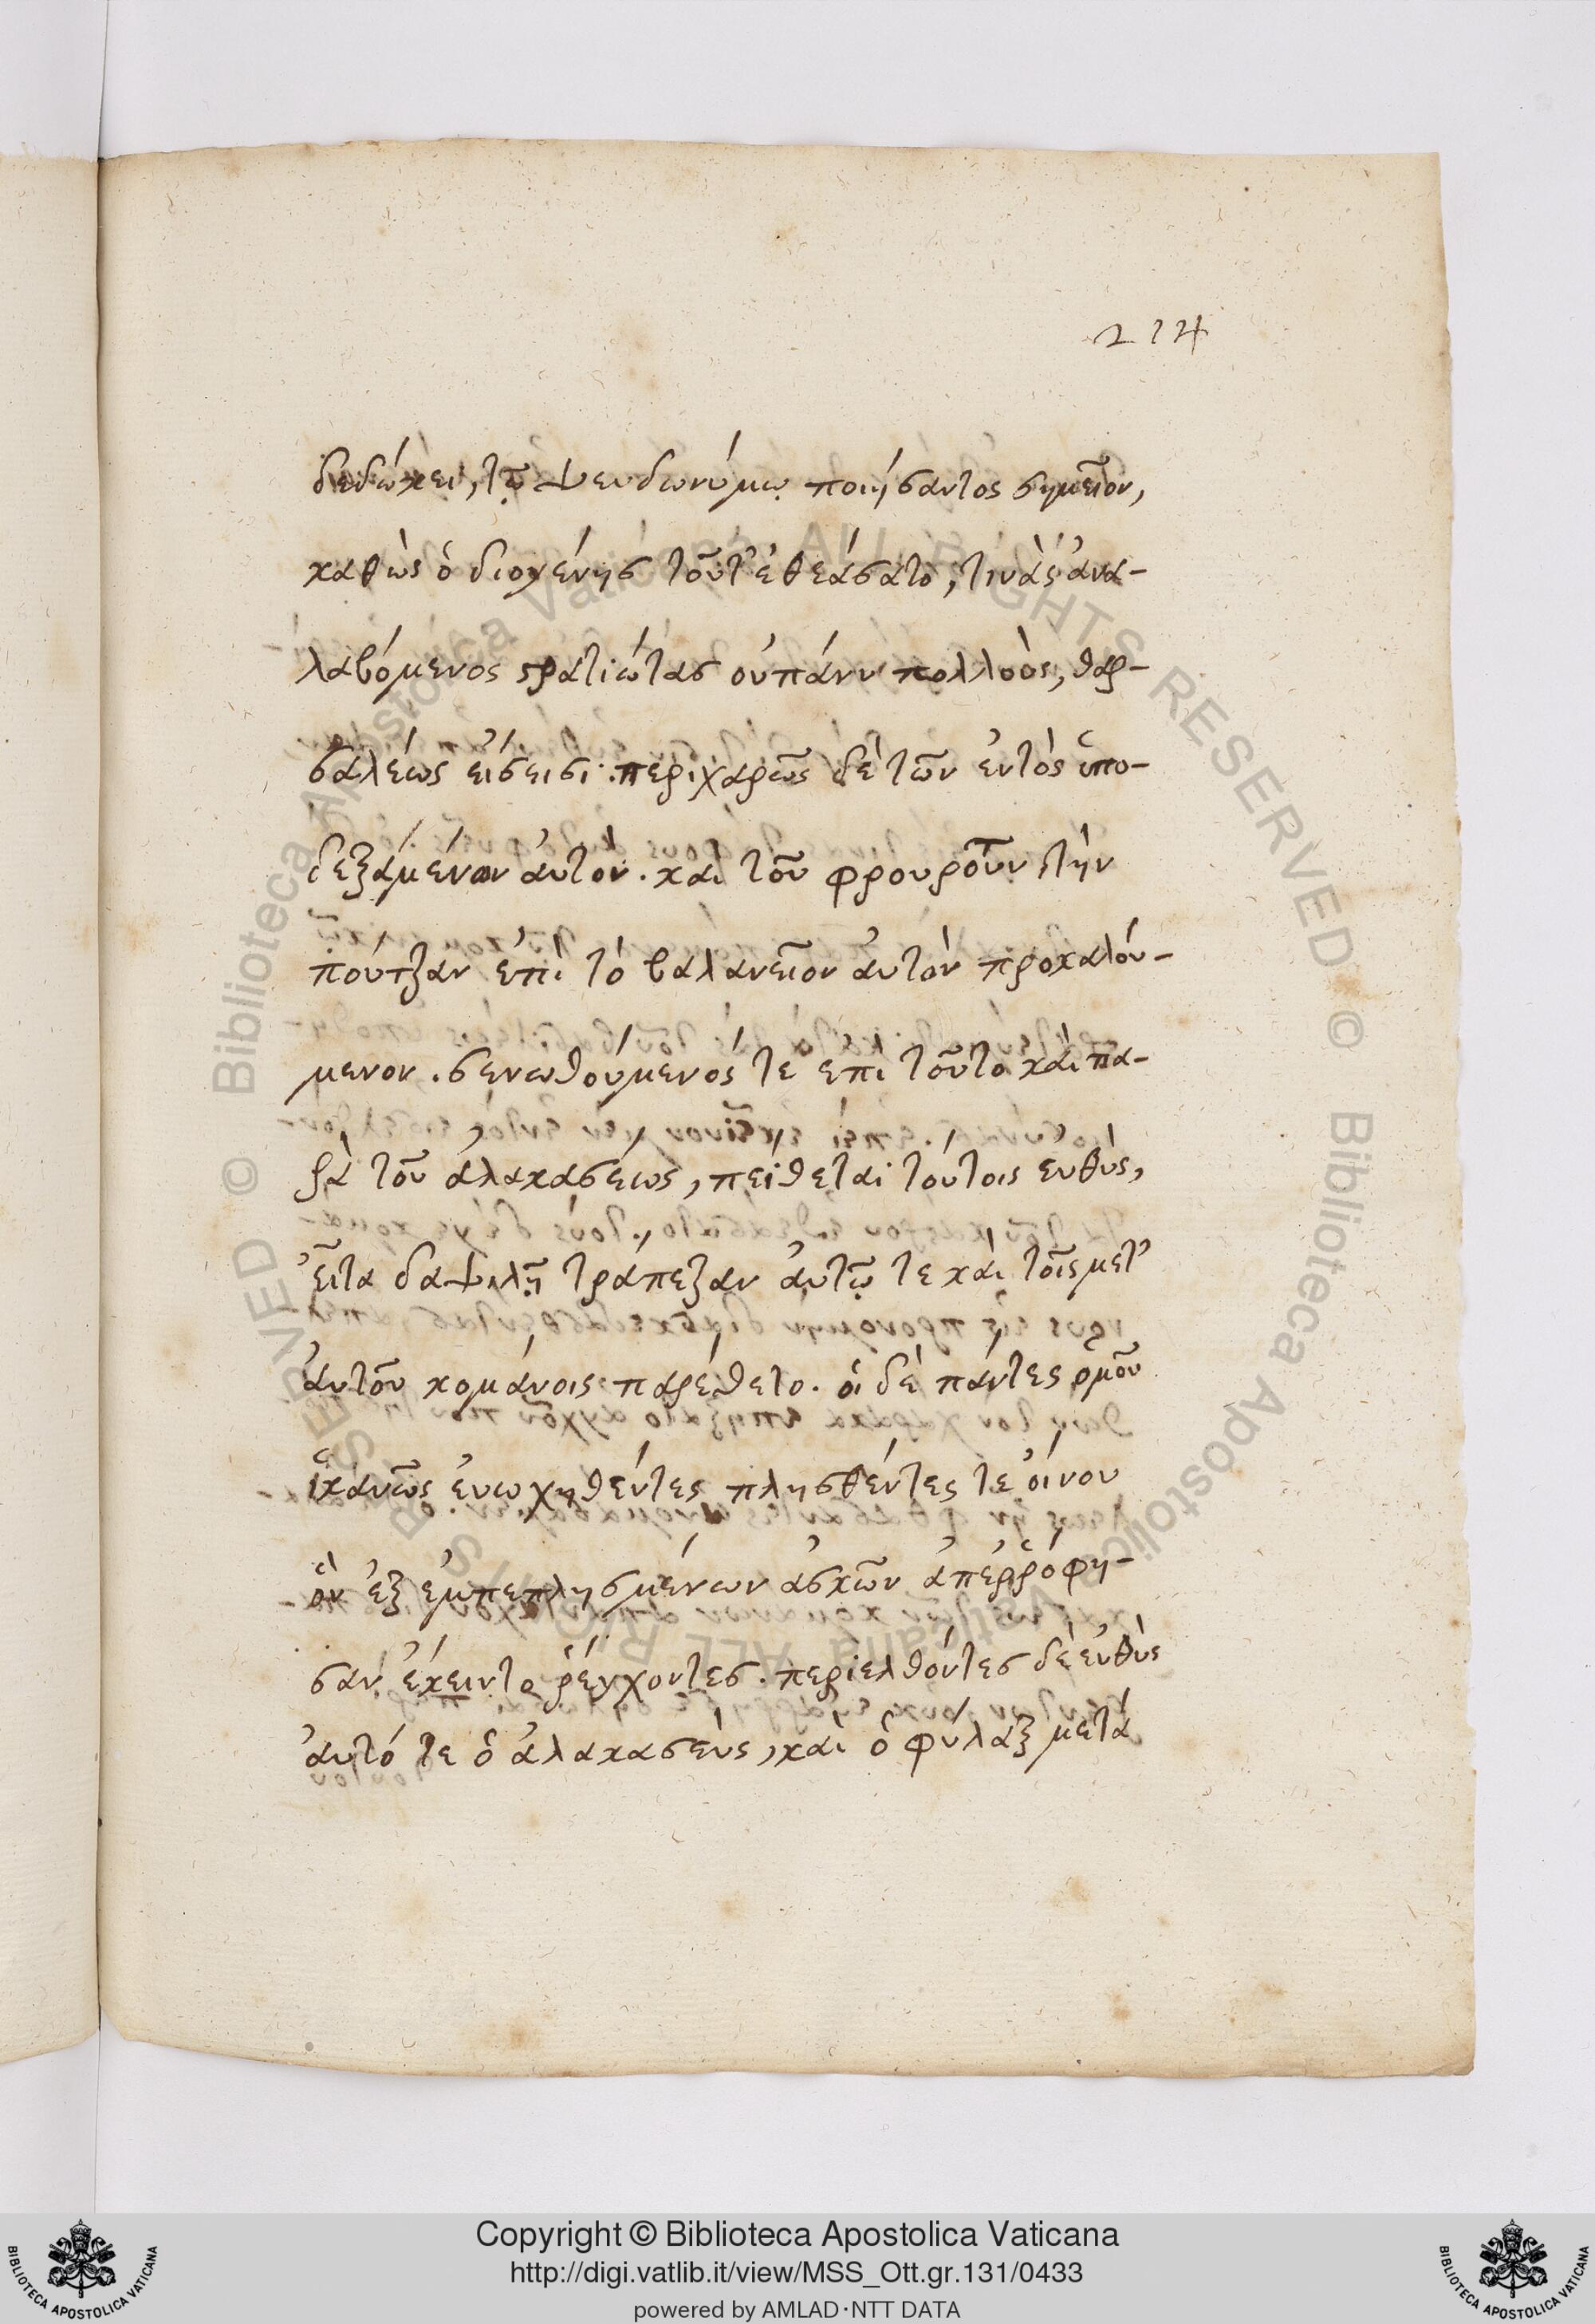 214
δεδώκει, τῷ ψευδωνύμῳ ποιήσαντος σημεῖον,
καθὼς ὁ διογένης τοῦτ' ἐθεάσατο, τινὰς ἀνα-
λαβόμενος στρατιώτας οὐπάνυ πολλοὺς, θαρ-
σαλέως εἰσεισι. περιχαρῶς δὲ τῶν ἐντὸς ὑπο-
δεξαμένων ἀυτὸν. καὶ τοῦ φρουροῦντὴν
πούτζαν ἐπὶ τὸ βαλανεῖον ἀυτὸν προκαλού-
μενον. σενωθούμενος τε επι τοῦτο καὶ πα-
ρὰ τοῦ ἀλακασέως, πείθεται τούτοις ευθὺς,
εἶτα δαψιλῆ τράπεζαν ἀυτῷ τε καὶ τοῖς μετ'
ἀυτοῦ κομάνοις παρέθετο. οἱ δὲ πάντες ὁμοῦ
ἱκανῶς ἐυωχηθέντες πλησθέντες τε οἴνου
ὃν ἐξ ἐμπεπλησμένων ἀσκῶν ἀπεῤῥόφη-
σαν ἐκειντο ῥέγχοντες. περιελθόντες δὲ ἐυθὺς
ἀυτό τε ὁ ἀλακασεὺς, καὶ ὁ φύλαξ μετὰ
Copyright © Biblioteca Apostolica Vaticana
http://digi.vatlib.it/view/MSS_Ott.gr.131/0433
powered by AMLAD·NTT DATA